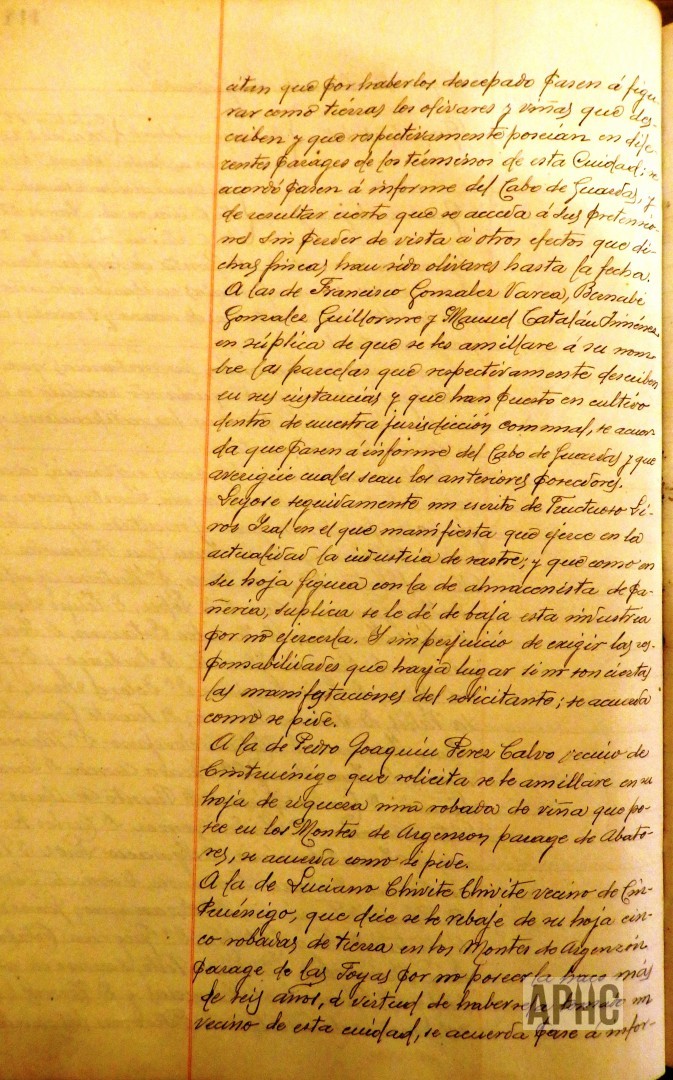 citan que por haberlos descepado pasen á figu-
rar como tierras los olivares y viñas que des-
criben y que respectivamente poseían en dife-
rentes parages de los términos de esta Ciudad; se
acordó pasen á informe del Cabo de Guardas, y
de resultar cierto que se acceda á sus pretensio-
nes sin perder de vista á otros efectos que di-
chas fincas han sido olivares hasta la fecha.
A las de Francisco Gonzalez Varea, Bernabé
Gonzalez Guillorme y Manuel Catalán Jiménez
en súplica de que se les amillare á su nom-
bre las parcelas que respectivamente describen
en sus instancias y que han puesto en cultivo
dentro de nuestra jurisdicción comunal, se acuer-
da que pasen á informe del Cabo de Guardas y que
averigüe cuales sean los anteriores poseedores.
Leyose seguidamente un escrito de Fructuoso Li-
ros Izal en el que manifiesta que ejerce en la
actualidad la industria de sastre; y que como en
su hoja figura con la de almaconista de pa-
ñeria, suplica se le dé de baja esta industria
por no ejercerla. Y sin perjuicio de exigir las res-
ponsabilidades que haya lugar si no son ciertas
las manifestaciones del solicitante; se acuerda
como se pide.
A la de Pedro Joaquín Perez Calvo vecino de
Cintruénigo que solicita se le amillare en su
hoja de riqueza una robada de viña que po-
see en los Montes de Argenzon parage de Abato-
res, se acuerda como se pide.
A la de Luciano Chivite Chivite vecino de Cin-
truénigo, que dice se le rebaje de su hoja cin-
co robadas de tierra en los Montes de Argenzón
parage de las Foyas por no poseerla hace más
de seis años, á virtud de habersela un
vecino de esta ciudad, se acuerda pase á infor-
APHC